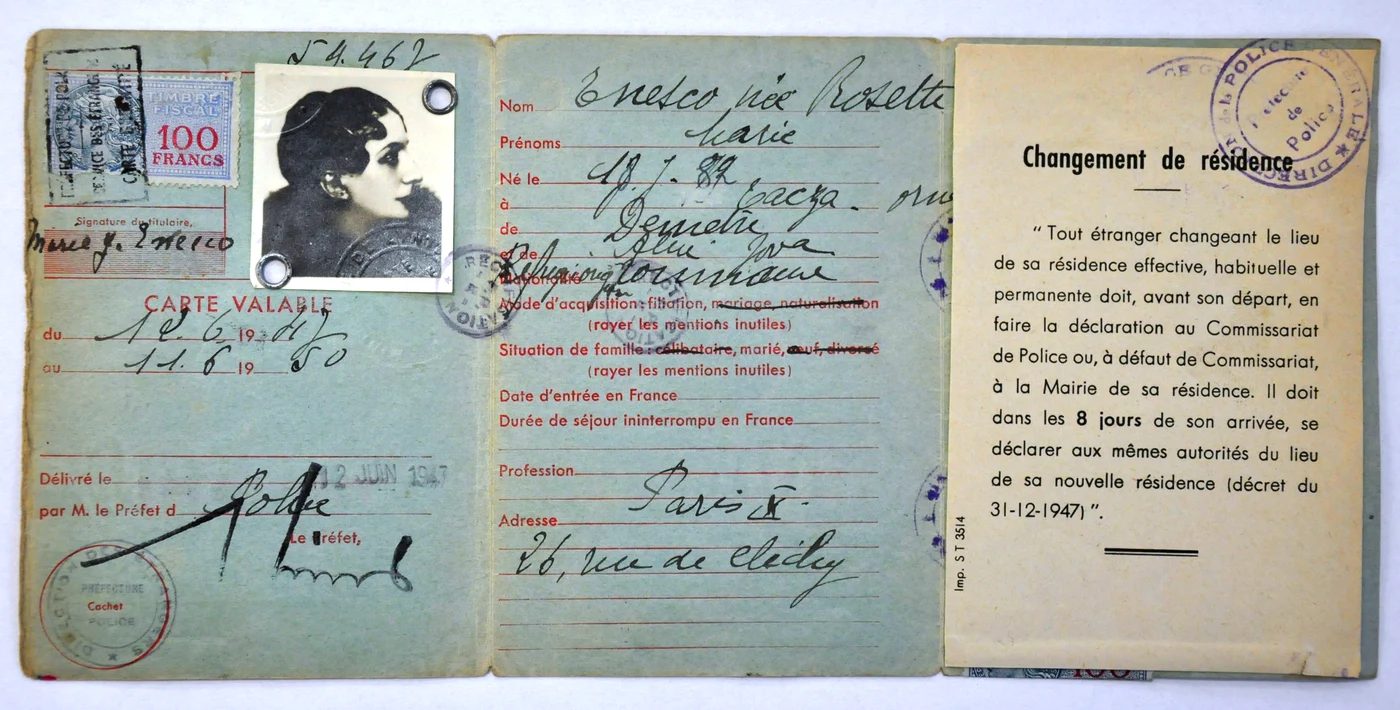 54.467
PREFECTURE DE POLICE
SERVICE DES ÉTRANGERS
CARTE D'IDENTITÉ
TIMBRE
FISCAL
100
FRANCS
Signature du titulaire,
Marie J. Enesco
CARTE VALABLE
du 12.6 19 47
au 11.6 19 50
Délivré le 12 JUIN 1947
par M. le Préfet d Police
Le Préfet,
PRÉFECTURE
Cachet
POLICE
DIRECTION DES ÉTRANGERS
Nom Enesco née Rosetti
Prénoms Marie
Né le 18.7.
à
de Demetre
et de
Nationalité Réfugié orig roumaine
Mode d'acquisition : filiation, mariage, naturalisation
(rayer les mentions inutiles)
Situation de famille : célibataire, marié, veuf, divorcé
(rayer les mentions inutiles)
Date d'entrée en France
Durée de séjour ininterrompu en France
Profession
Paris IX
Adresse
26, rue de Clichy
DIRECTION de la POLICE GÉNÉRALE
Préfecture
de
Police
Changement de résidence
“ Tout étranger changeant le lieu
de sa résidence effective, habituelle et
permanente doit, avant son départ, en
faire la déclaration au Commissariat
de Police ou, à défaut de Commissariat,
à la Mairie de sa résidence. Il doit
dans les 8 jours de son arrivée, se
déclarer aux mêmes autorités du lieu
de sa nouvelle résidence (décret du
31-12-1947) ”.
Imp. S T 3514
100